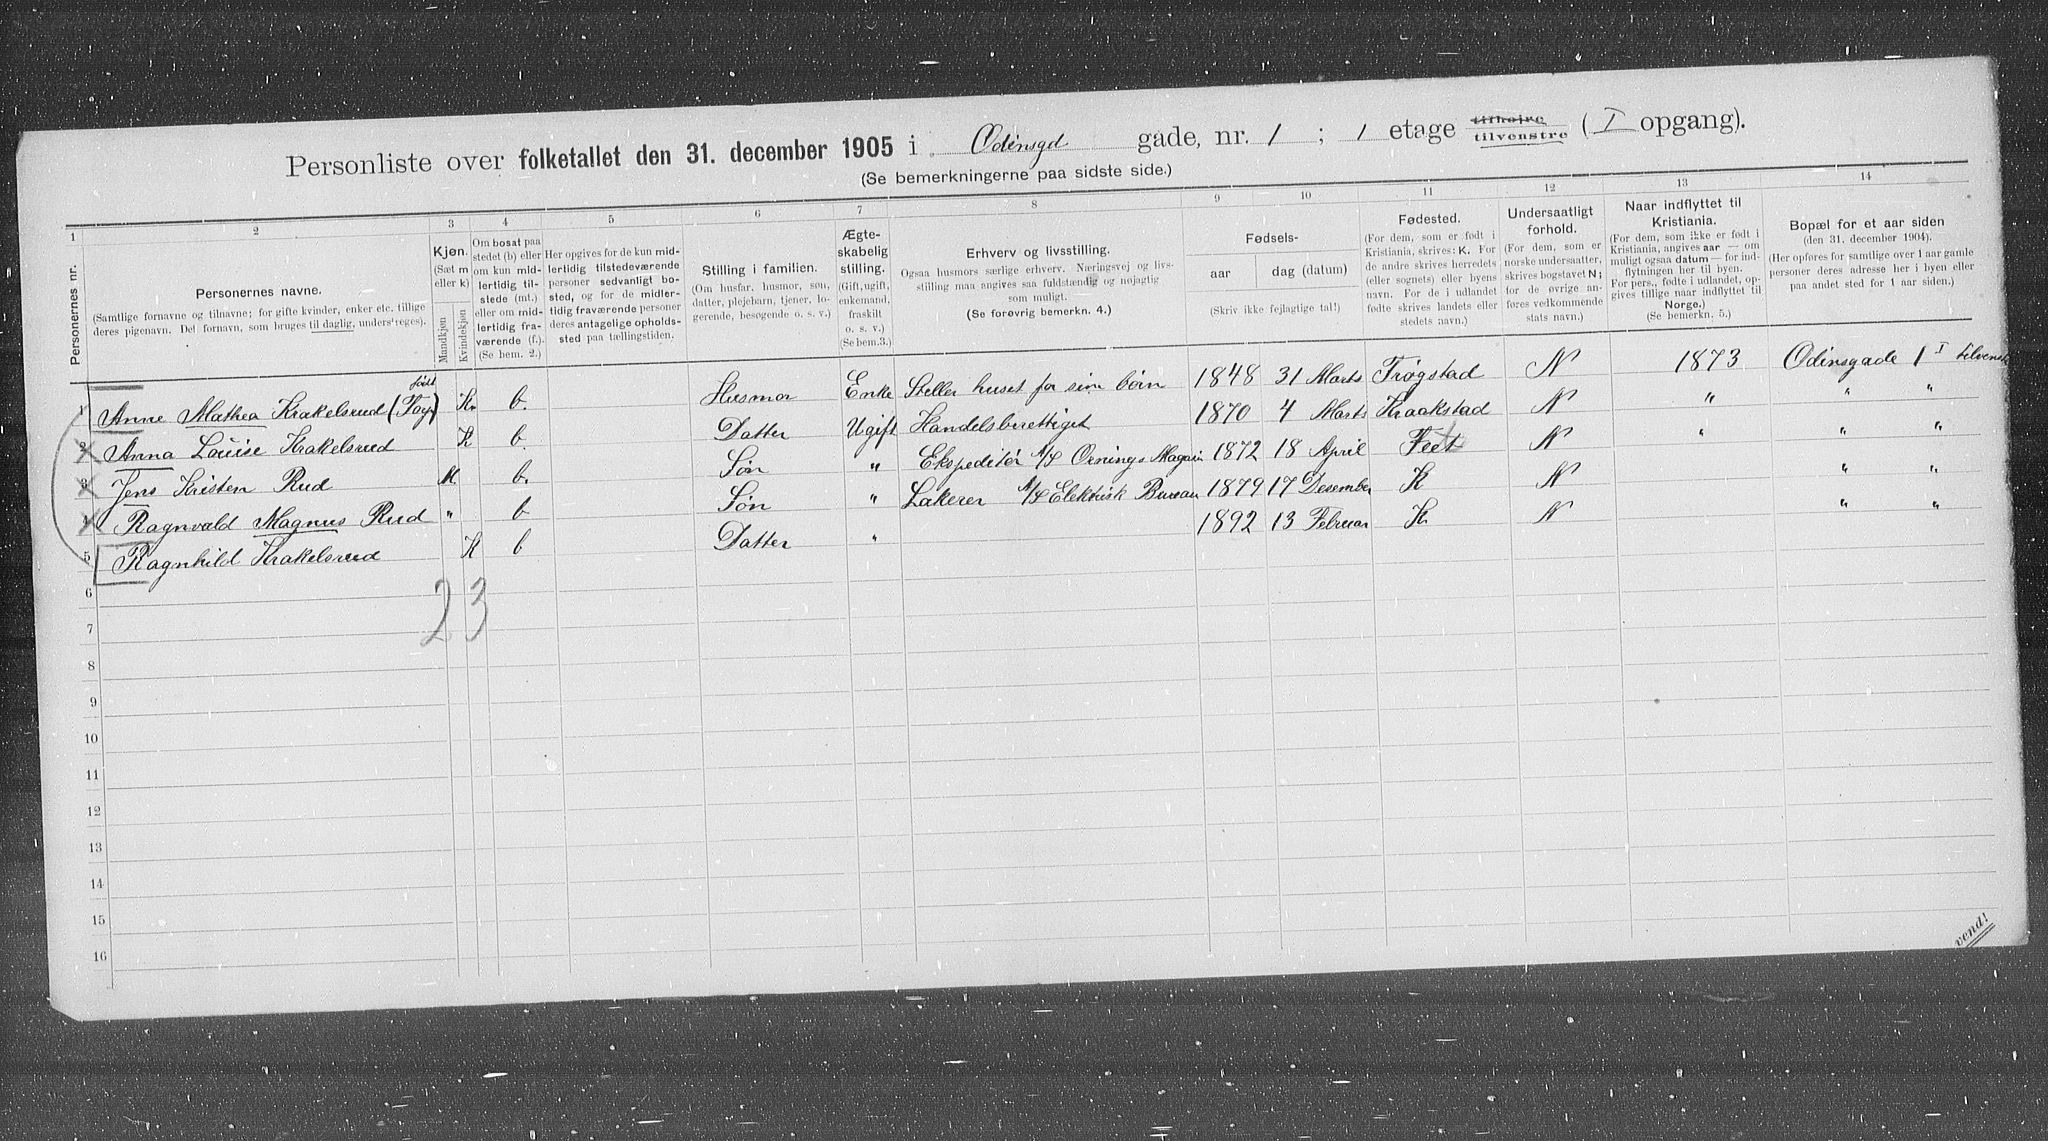 Personliste over folketallet den 31. december 1905 i Odinsgd gade, nr. 1 ; 1 etage tilhøire tilvenstre ( I opgang).
(Se bemerkningerne paa sidste side.)
1 2 3 4 5 6 7 8 9 10 11 12 13 14
Personernes nr.
Personernes navne.
(Samtlige fornavne og tilnavne; for gifte kvinder, enker etc. tillige deres pigenavn. Det fornavn, som bruges til daglig, understreges).
Kjøn.
(Sæt m eller k)
Mandkjøn
Kvindekjøn
Om bosat paa stedet (b) eller om kun midlertidig tilstede (mt.) eller om midlertidig fraværende (f.). (Se bem. 2.)
Her opgives for de kun midlertidig tilstedeværende personer sedvanligt bosted, og for de midlertidig fraværende personer deres antagelige opholdssted paa tællingstiden.
Stilling i familien.
(Om husfar, husmor, søn, datter, plejebarn, tjener, logerende, besøgende o. s. v.)
Ægteskabelig stilling.
(Gift, ugift, enkemand, fraskilt o. s. v.)
(Se bem.3.)
Erhverv og livsstilling.
Ogsaa husmors særlige erhverv. Næringsvej og livsstilling maa angives saa fuldstændig og nøjagtig som muligt.
(Se forøvrig bemerkn. 4.)
Fødsels-
aar dag (datum)
(Skriv ikke fejlagtige tal!)
Fødested.
(For dem, som er født i Kristiania, skrives: K. For de andre skrives herredets (eller sognets) eller byens navn. For de i udlandet fødte skrives landets eller stedets navn.)
Undersaatligt forhold.
(For dem, som er norske undersaatter, skrives bogstavet N; for de øvrige anføres vedkommende stats navn.)
Naar indflyttet til Kristiania.
(For dem, som ikke er født i Kristiania, angives aar — om muligt ogsaa datum — for indflytningen her til byen. For pers., fødte i udlandet, opgives tillige naar indflyttet til Norge.)
(Se bemerkn. 5.)
Bopæl for et aar siden
(den 31. december 1904).
(Her opføres for samtlige over 1 aar gamle personer deres adresse her i byen eller paa andet sted for 1 aar siden.)
1 Anne Mathea Krakelsrud (født) K. b. Husmor Enke Steller huset for sine børn 1848 31 Marts Trøgstad N 1873 Odinsgade 1 I tilvenstre
2 Anna Louise Krakelsrud K b. Datter Ugift Handelsberettiget 1870 4 Marts Kraakstad N " " "
3 Jens Kristen Rud M b. Søn " Ekspeditør A/S Magasin 1872 18 April Feet N " " "
4 Ragnvald Magnus Rud " b Søn " Lakerer A/S Elektrisk Bureau 1879 17 Desember K N " "
5 Ragnhild Krakelsrud K b Datter " 1892 13 Februar K. N " "
2 3
6
7
8
9
10
11
12
13
14
15
16
vend!